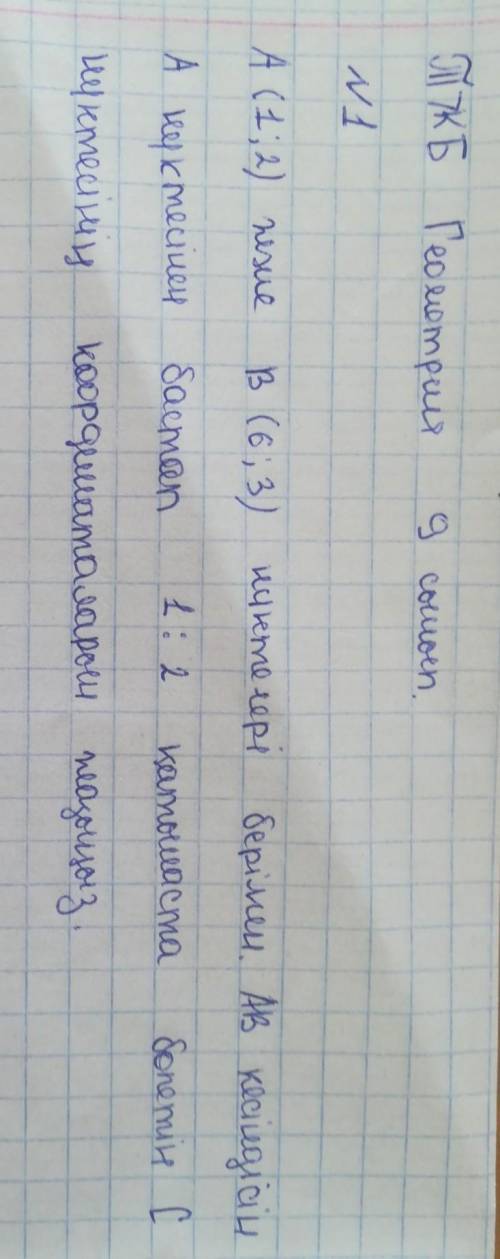 ТЖБ Геометрия 9 сынып.
№1
А (1; 2) және В (6; 3) нүктелері берілген. АВ кесіндісін
А нүктесінен бастап 1 : 2 қатынаста бөлетін С
нүктесінің координаталарын табыңыз.